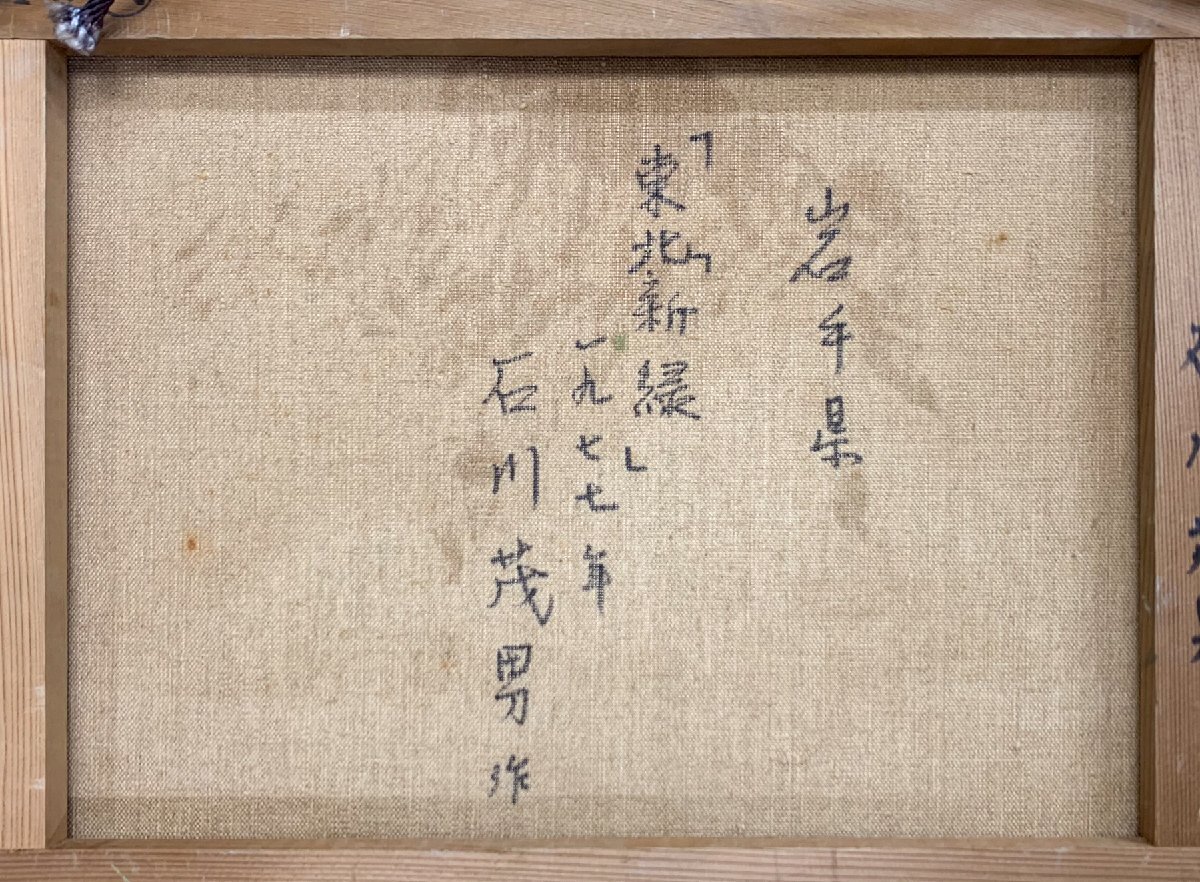 岩手県
「東北新緑」
一九七七年
石川茂男作